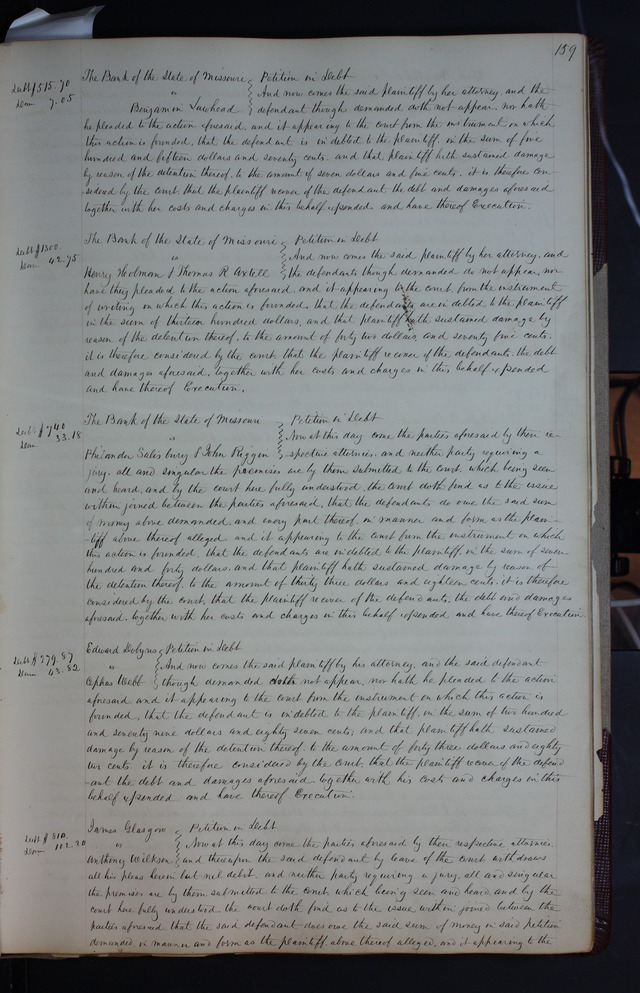 159
Debt $515.70 The Bank of the State of Missouri Petition in Debt
Dam 7.05 " And now comes the said plaintiff by her attorney, and the
Benjamin Lawhead defendant though demanded doth not appear, nor hath
he pleaded to the action aforesaid, and it appearing to the court from the instrument on which
this action is founded, that the defendant is indebted to the plaintiff, in the sum of five
hundred and fifteen dollars and seventy cents, and that plaintiff hath sustained damage
by reason of the detention thereof, to the amount of seven dollars and five cents. it is therefore con-
sidered by the court, that the plaintiff recover of the defendant the debt and damages aforesaid
together with her costs and charges in this behalf expended and have thereof Execution.
Debt $1300. The Bank of the State of Missouri Petition in Debt
Dam 42.75 " And now comes the said plaintiff by her attorney, and
Henry Holman & Thomas R Axtell the defendants though demanded do not appear, nor
have they pleaded to the action aforesaid, and it appearing to the court, from the instrument
of writing on which this action is founded, that the defendants are indebted to the plaintiff
in the sum of thirteen hundred dollars, and that plaintiff hath sustained damage by
reason of the detention thereof, to the amount of forty two dollars and seventy five cents.
it is therefore considered by the court, that the plaintiff recover of the defendants, the debt
and damages aforesaid, together with her costs and charges in this behalf expended
and have thereof Execution.
Debt $740 The Bank of the State of Missouri Petition in Debt
Dam 33.18 " Now at this day come the parties aforesaid by their re-
Salisbury & John Riggin spective attornies, and neither party requiring a
jury, all and singular the premises are by them submitted to the Court, which being seen
and heard, and by the court here fully understood, the court doth find as to the issue
within joined between the parties aforesaid, that the defendants do owe the said sum
of money above demanded, and every part thereof, in manner and form as the plain-
tiff above thereof alleged and it appearing to the court from the instrument on which
this action is founded, that the defendants are indebted to the plaintiff, in the sum of seven
hundred and forty dollars, and that plaintiff hath sustained damage by reason of
the detention thereof, to the amount of thirty three dollars and eighteen cents. it is therefore
considered by the court, that the plaintiff recover of the defendants, the debt and damages
aforesaid, together with her costs and charges in this behalf expended and have thereof Execution.
Debt $279.87 Edward Dobyns Petition in Debt
Dam 43.82 " And now comes the said plaintiff by his attorney, and the said defendant
Cephas Webb though demanded doth not appear, nor hath he pleaded to the action
aforesaid and it appearing to the court from the instrument on which this action is
founded, that the defendant is indebted to the plaintiff, in the sum of two hundred
and seventy nine dollars and eighty seven cents, and that plaintiff hath sustained
damage by reason of the detention thereof, to the amount of forty three dollars and eighty
two cents. it is therefore considered by the court that the plaintiff recover of the defend
ant the debt and damages aforesaid, together with his costs and charges in this
behalf expended and have thereof Execution.
Debt $810. James Glasgow Petition in Debt
Dam 102.20 " Now at this day come the parties aforesaid by their respective attornies
Anthony Wilkson and thereupon the said defendant by leave of the court withdraws
all his pleas herein but nil debit, and neither party requiring a jury, all and singular
the premises are by them submitted to the Court, which being seen and heard and by the
court here fully understood the court doth find as to the issue within joined between the
parties aforesaid that the said defendant does owe the said sum of money in said petition
demanded in manner and form as the plaintiff, above thereof alleged, and it appearing to the